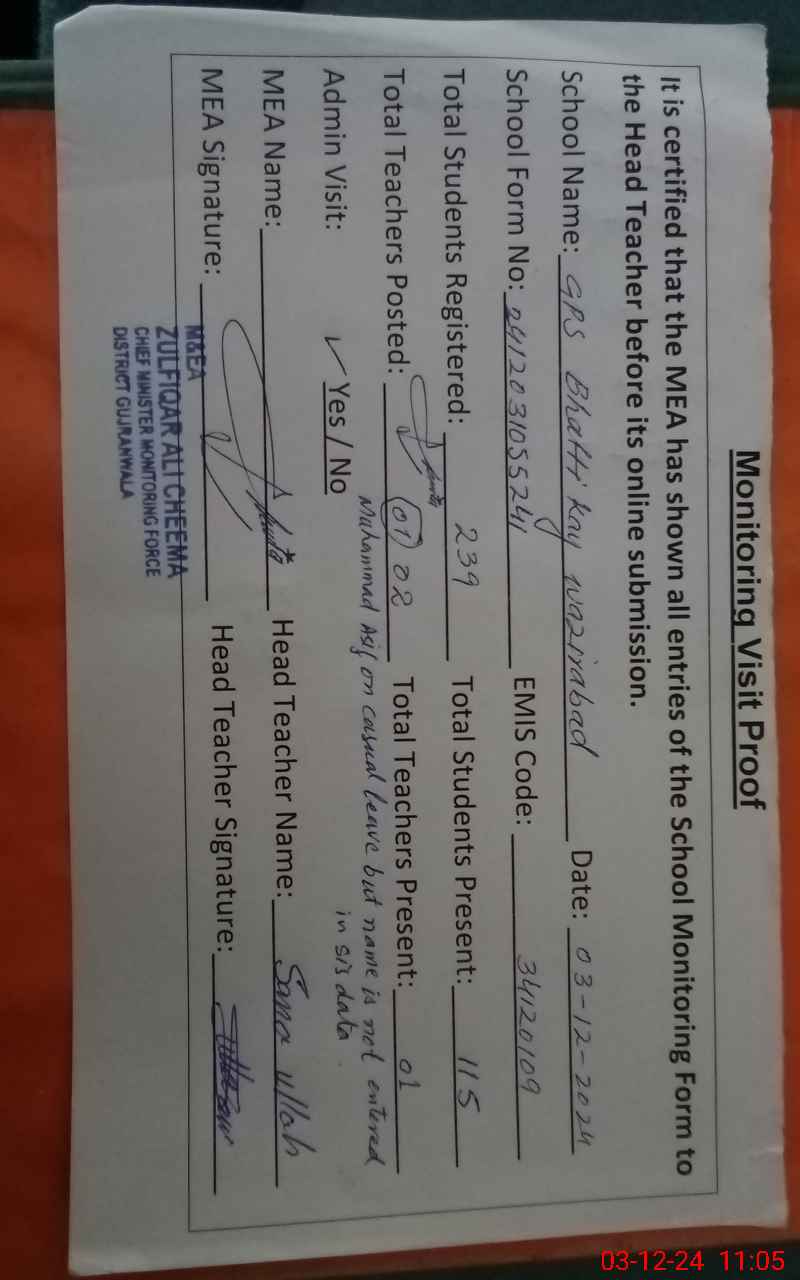 Monitoring Visit Proof
It is certified that the MEA has shown all entries of the School Monitoring Form to
the Head Teacher before its online submission.
School Name: GPS Bhatti Kay Wazirabad Date: 03-12-2024
School Form No: 241203105524 EMIS Code: 34120109
Total Students Registered: 239 Total Students Present: 115
Total Teachers Posted: 01 02 Total Teachers Present: 01
Muhammad Asif on casual leave but name is not entered
in sis data.
Admin Visit: ✓ Yes / No
MEA Name: Head Teacher Name: Sana ullah
MEA Signature: Head Teacher Signature:
M&EA
ZULFIQAR ALI CHEEMA
CHIEF MINISTER MONITORING FORCE
DISTRICT GUJRANWALA
03-12-24 11:05